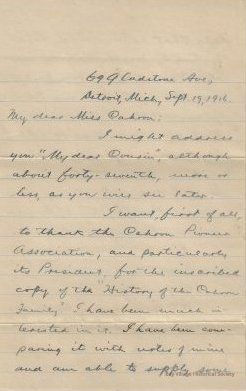 69 Gladstone Ave,
Detroit, Mich, Sept. 19, 1916.
My dear Miss Cahoon:
I might address
you "My dear Cousin", although
about forty-seventh, more or
less, as you will see later.
I want, first of all,
to thank the Cahoon Pioneer
Association, and particularly
its President, for the inscribed
copy of the "History of the Cahoon
Family". I have been much in-
terested in it. I have been com-
paring it with notes of mine
and am able to supply some
Historical Society